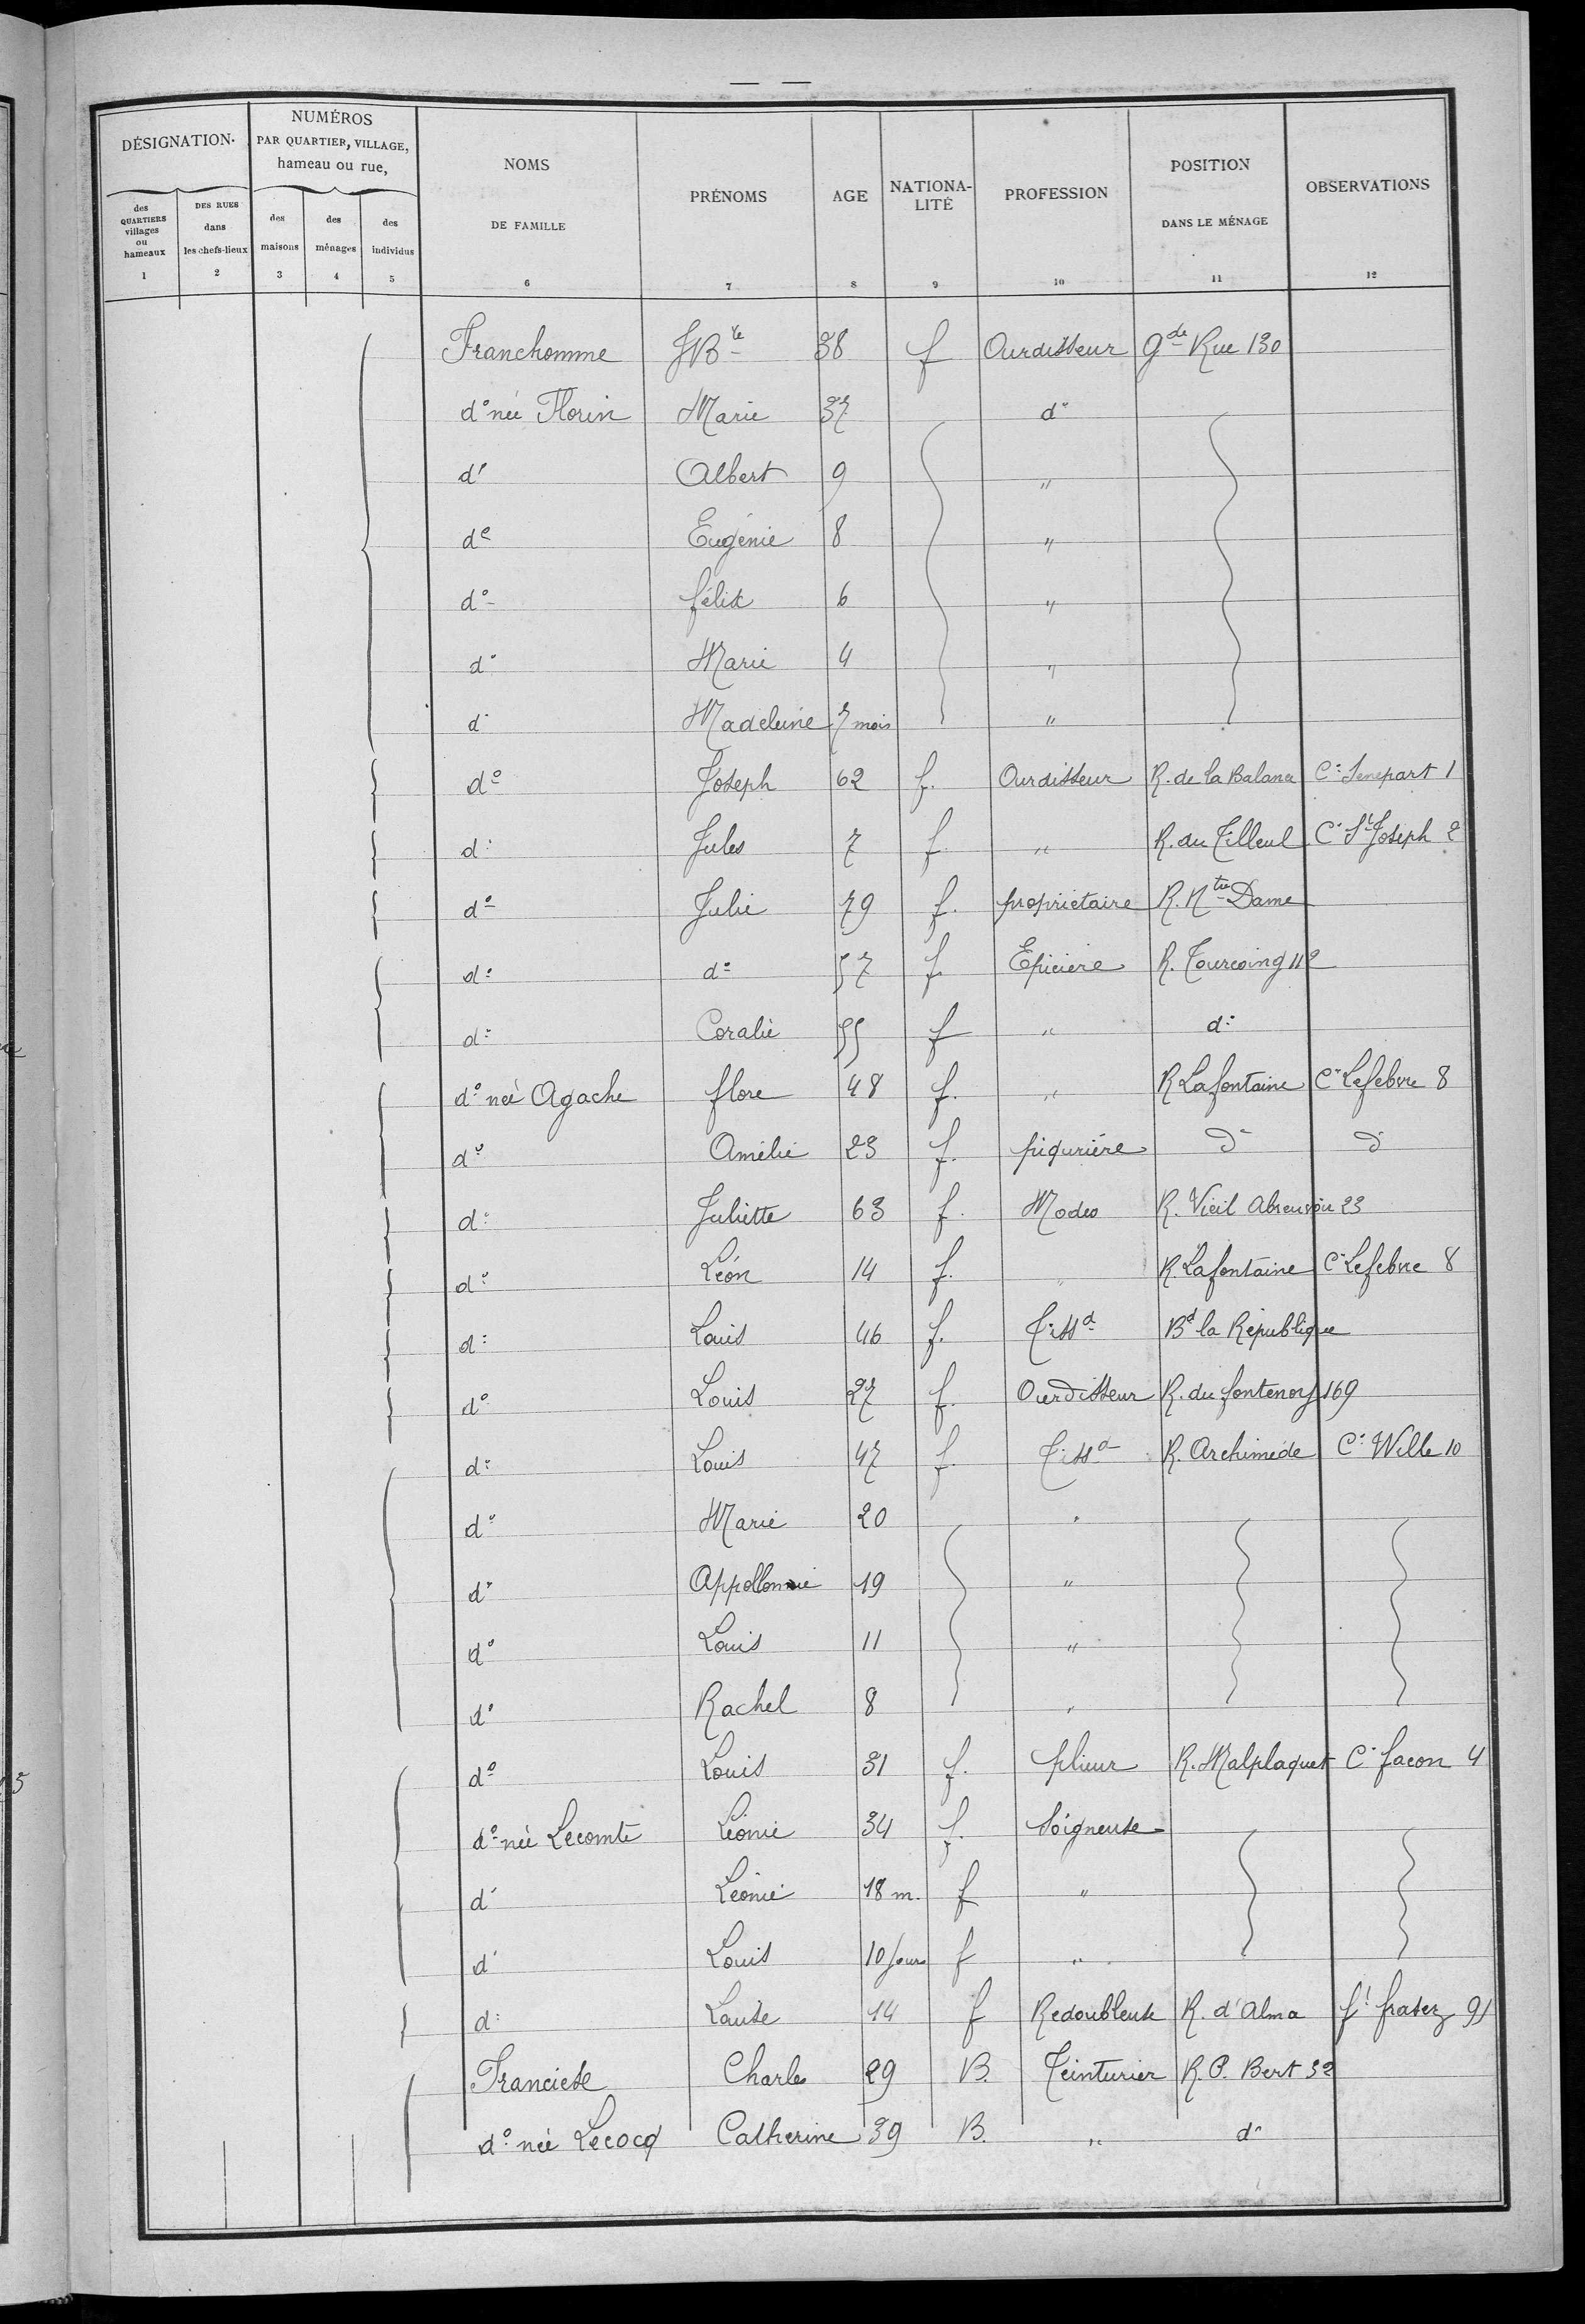 — —
DÉSIGNATION·
NUMÉROS
PAR QUARTIER, VILLAGE,
hameau ou rue,
NOMS
DE FAMILLE
PRÉNOMS
AGE
NATIONA-
LITÉ
PROFESSION
POSITION
DANS LE MÉNAGE
OBSERVATIONS
des QUARTIERS villages ou hameaux
DES RUES dans les chefs-lieux
des maisons
des ménages
des individus
1 2 3 4 5 6 7 8 9 10 11 12
Franchomme JBte 38 f Ourdisseur Gde Rue 130
do née Florin Marie 37 do
do Albert 9 "
do Eugénie 8 "
do félix 6 "
do Marie 4 "
do Madeleine 7 mois "
do Joseph 62 f. Ourdisseur R. de la Balance C: Senepart 1
do Jules 7 f " R. du Tilleul C: St Joseph 2
do Julie 79 f. propriétaire R. Ntre Dame
do do 57 f. Epicière R. Tourcoing 112
do Coralie 55 f " do
do née Agache flore 48 f. " R Lafontaine C: Lefebvre 8
do Amélie 23 f. piqurière do do
do Juliette 63 f. Modes R. Vieil Abreuvoir 23
do Léon 14 f. " R. Lafontaine C: Lefebvre 8
do Louis 46 f. Tissd Bd la République
do Louis 27 f. Ourdisseur R. du fontenoy 169
do Louis 47 f. Tissd R. Archimède C: Wille 10
do Marie 20 "
do Appollonie 19 "
do Louis 11 "
do Rachel 8 "
do Louis 31 f. plieur R. Malplaquet C: facon 4
do née Lecomte Léonie 34 f. Soigneuse
do Léonie 18 m. f "
do Louis 10 jours f "
do Louise 14 f Redoubleuse R. d'Alma ft frasez 91
Franciese Charles 29 B. Teinturier R. P. Bert 32
do née Lecocq Catherine 39 B. " do